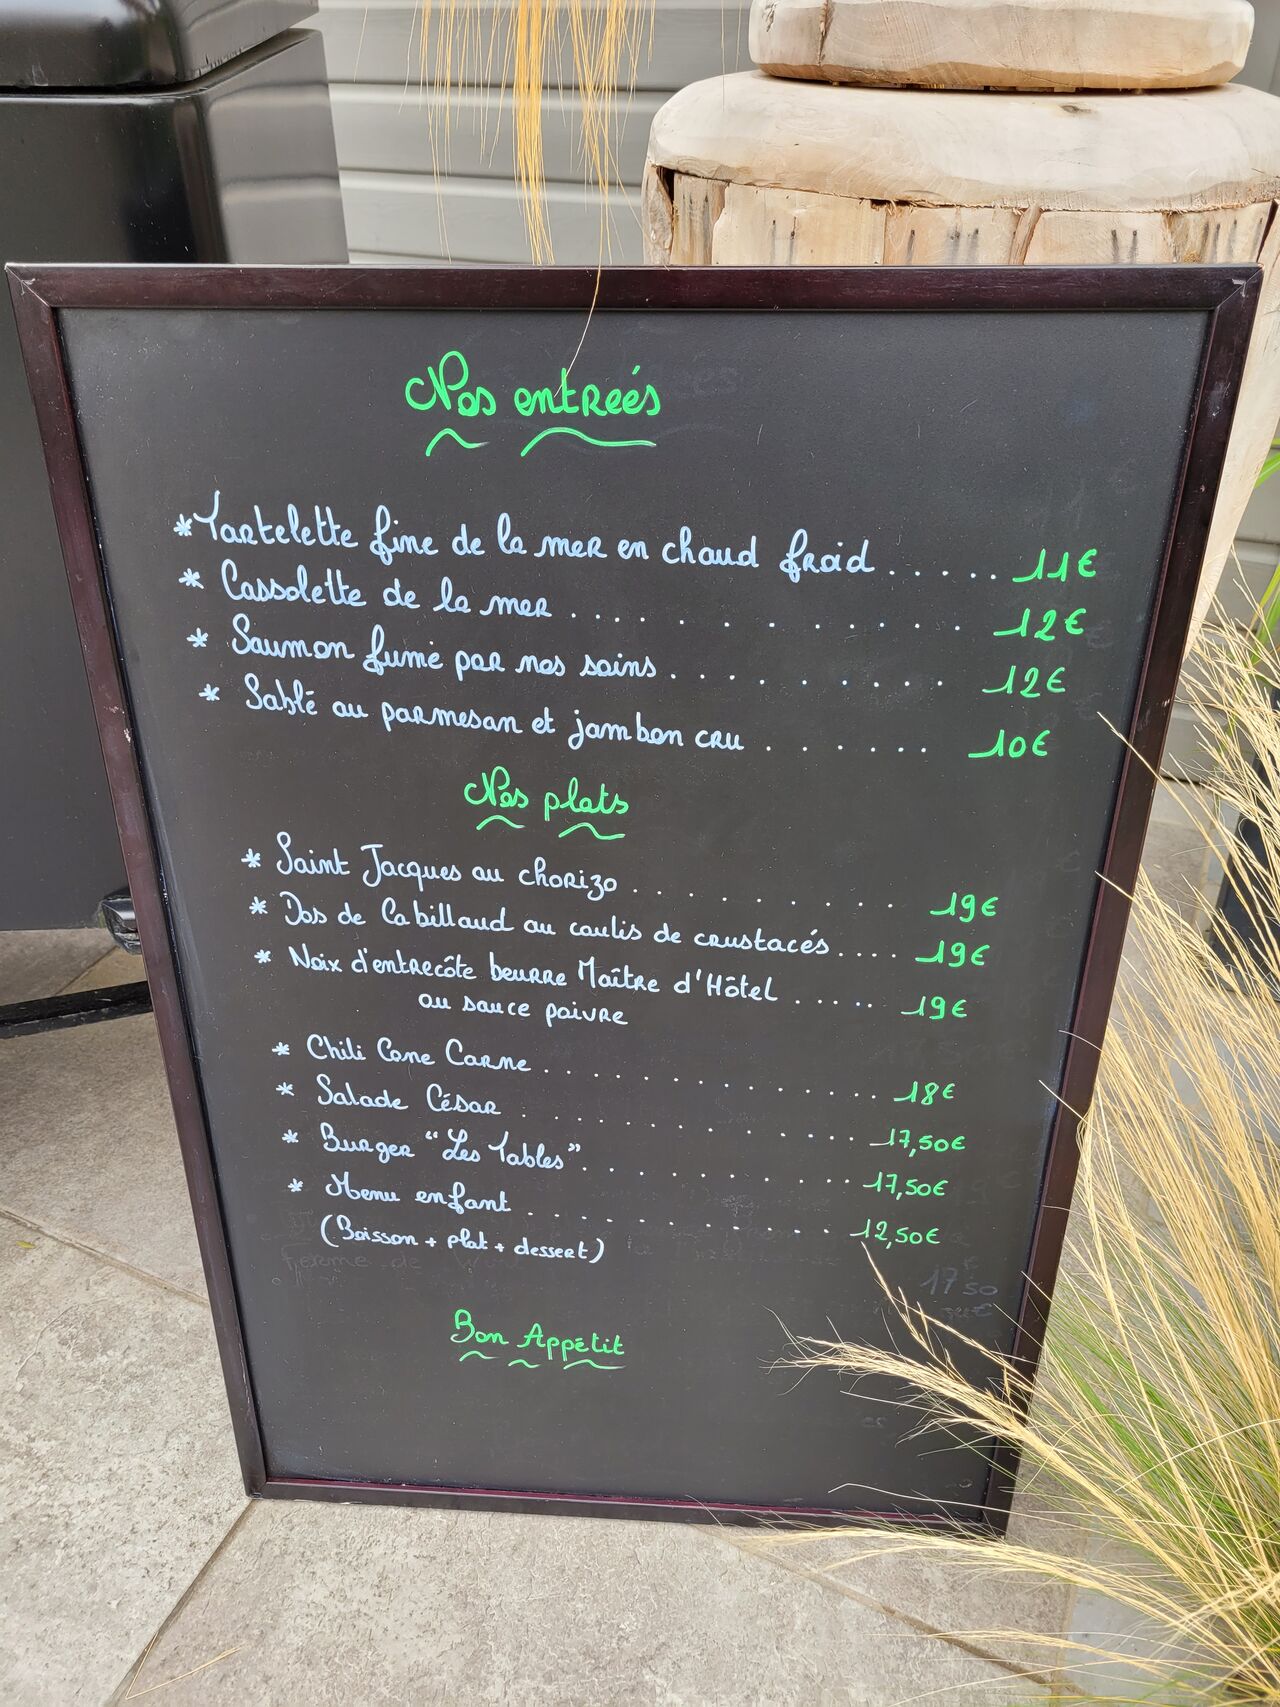 Nos entreés
*Tartelette fine de la mer en chaud froid..... 11€
* Cassolette de la mer .............. 12€
* Saumon fumé par nos soins.......... 12€
* Sablé au parmesan et jambon cru ...... 10€
Nos plats
* Saint Jacques au chorizo ......... 19€
* Dos de Cabillaud au coulis de crustacés.... 19€
* Noix d'entrecôte beurre Maître d'Hôtel ..... 19€
au sauce poivre
* Chili Cone Carne .............. 18€
* Salade César .............. 17,50€
* Burger “Les Tables”........... 17,50€
* Menu enfant ............ 12,50€
(Boisson + plat + dessert)
17€50
Bon Appétit